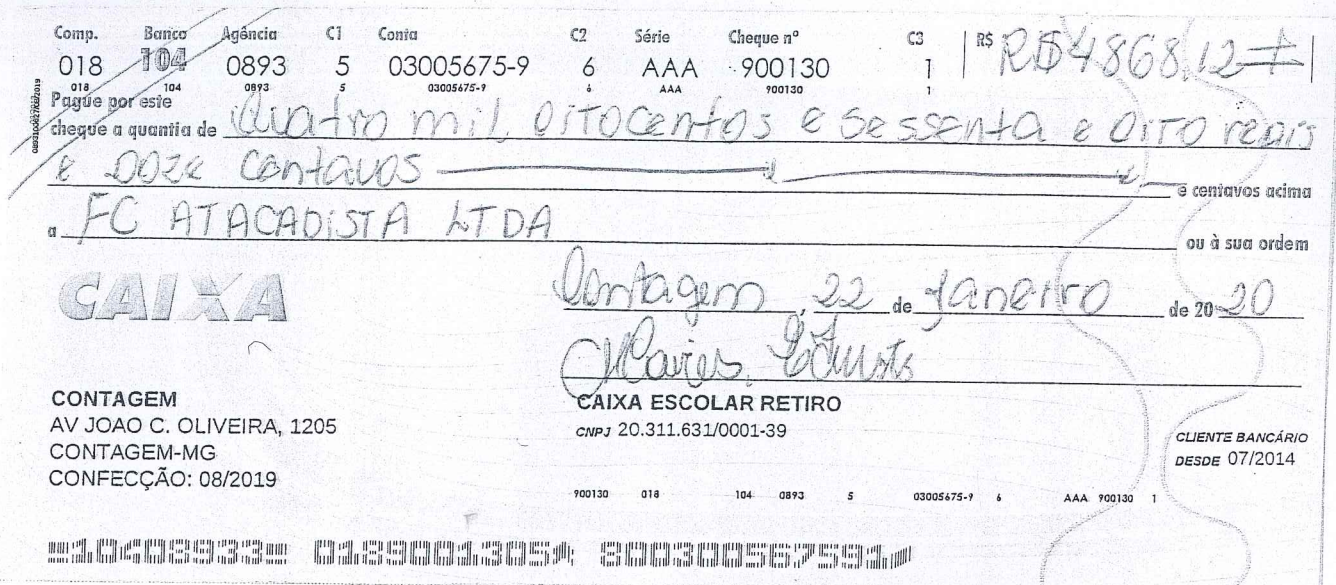 Comp. Banco Agência C1 Conta C2 Série Cheque nº C3 R$ R$4868,12
018 104 0893 5 03005675-9 6 AAA 900130 1
018 104 0893 5 03005675-9 6 AAA 900130 1
Pague por este
cheque a quantia de Quatro mil, oitocentos e sessenta e oito reais
e Doze centavos e centavos acima
a FC ATACADISTA LTDA ou à sua ordem
CAIXA
Contagem, 22 de Janeiro de 2020
CONTAGEM
AV JOAO C. OLIVEIRA, 1205
CONTAGEM-MG
CONFECÇÃO: 08/2019
CAIXA ESCOLAR RETIRO
CNPJ 20.311.631/0001-39
CLIENTE BANCÁRIO
DESDE 07/2014
900130 018 104 0893 5 03005675-9 6 AAA 900130 1
10408933 0189001305 800300567591